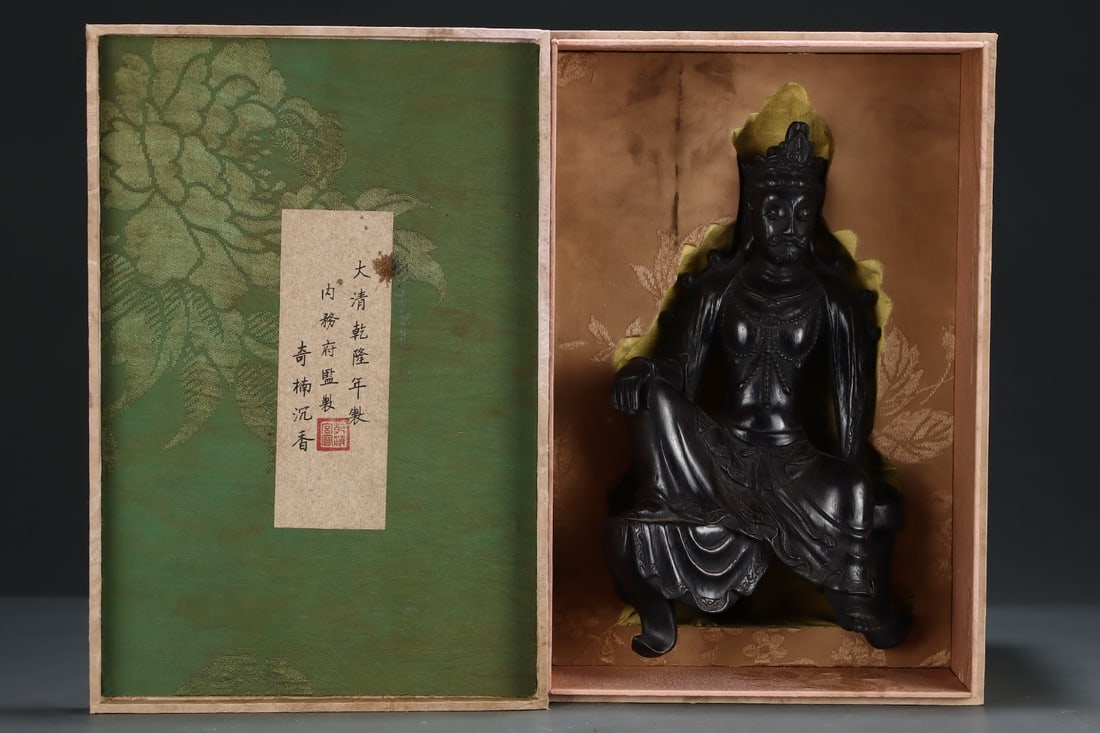 大清乾隆年製
内務府監製
奇楠沉香